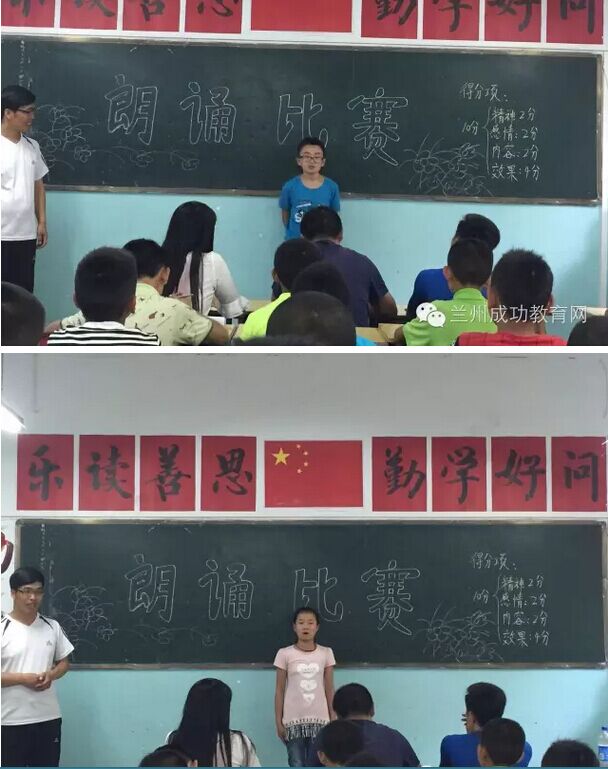 乐读善思 勤学好问
朗诵比赛
得分项：
10分
精神2分
感情：2分
内容：2分
效果：4分
兰州成功教育网
乐读善思 勤学好问
朗诵比赛
得分项：
10分
精神2分
感情：2分
内容：2分
效果：4分